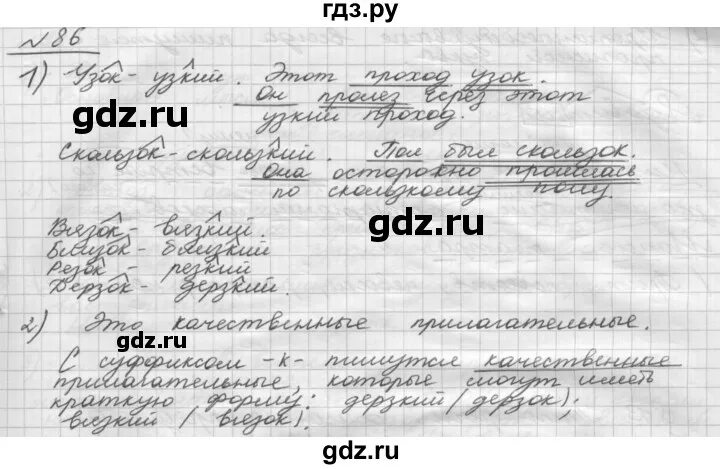 гдз.ру
№86
1) Узок - узкий. Этот проход узок.
Он пролез через этот
узкий проход.
gdz.ru
Скользок - скользкий. Пол был скользок.
Она осторожно прошлась
по скользкому полу.
Вязок - вязкий.
Близок - близкий
Резок - резкий
Дерзок - дерзкий.
gdz.ru
2) Это качественные прилагательные.
С суффиксом -к- пишутся качественные
gdz.ru
прилагательные, которые могут иметь
краткую форму: дерзкий (дерзок);
вязкий (вязок);
gdz.ru